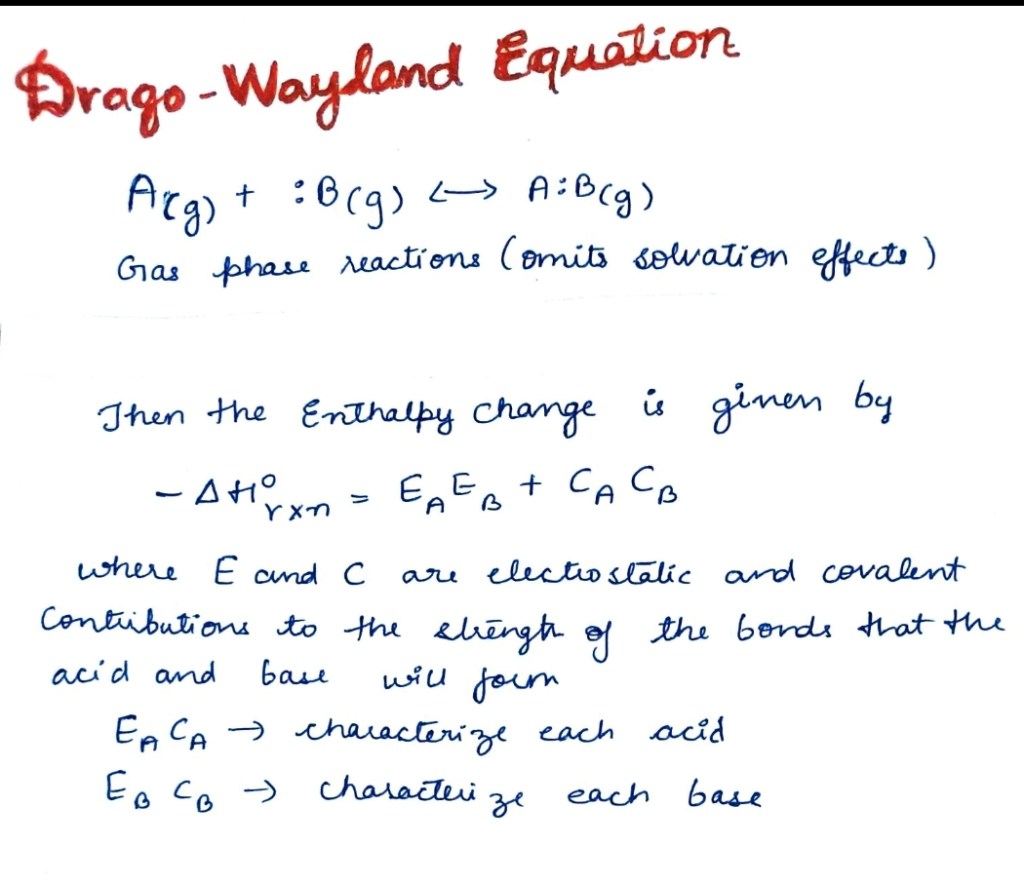 Drago-Wayland Equation
A(g) + :B(g) ⟷ A:B(g)
Gas phase reactions (omits solvation effects)
Then the Enthalpy change is given by
- ΔH°rxn = E_A E_B + C_A C_B
where E and C are electrostatic and covalent
Contributions to the strength of the bonds that the
acid and base will form
E_A C_A → characterize each acid
E_B C_B → characterize each base